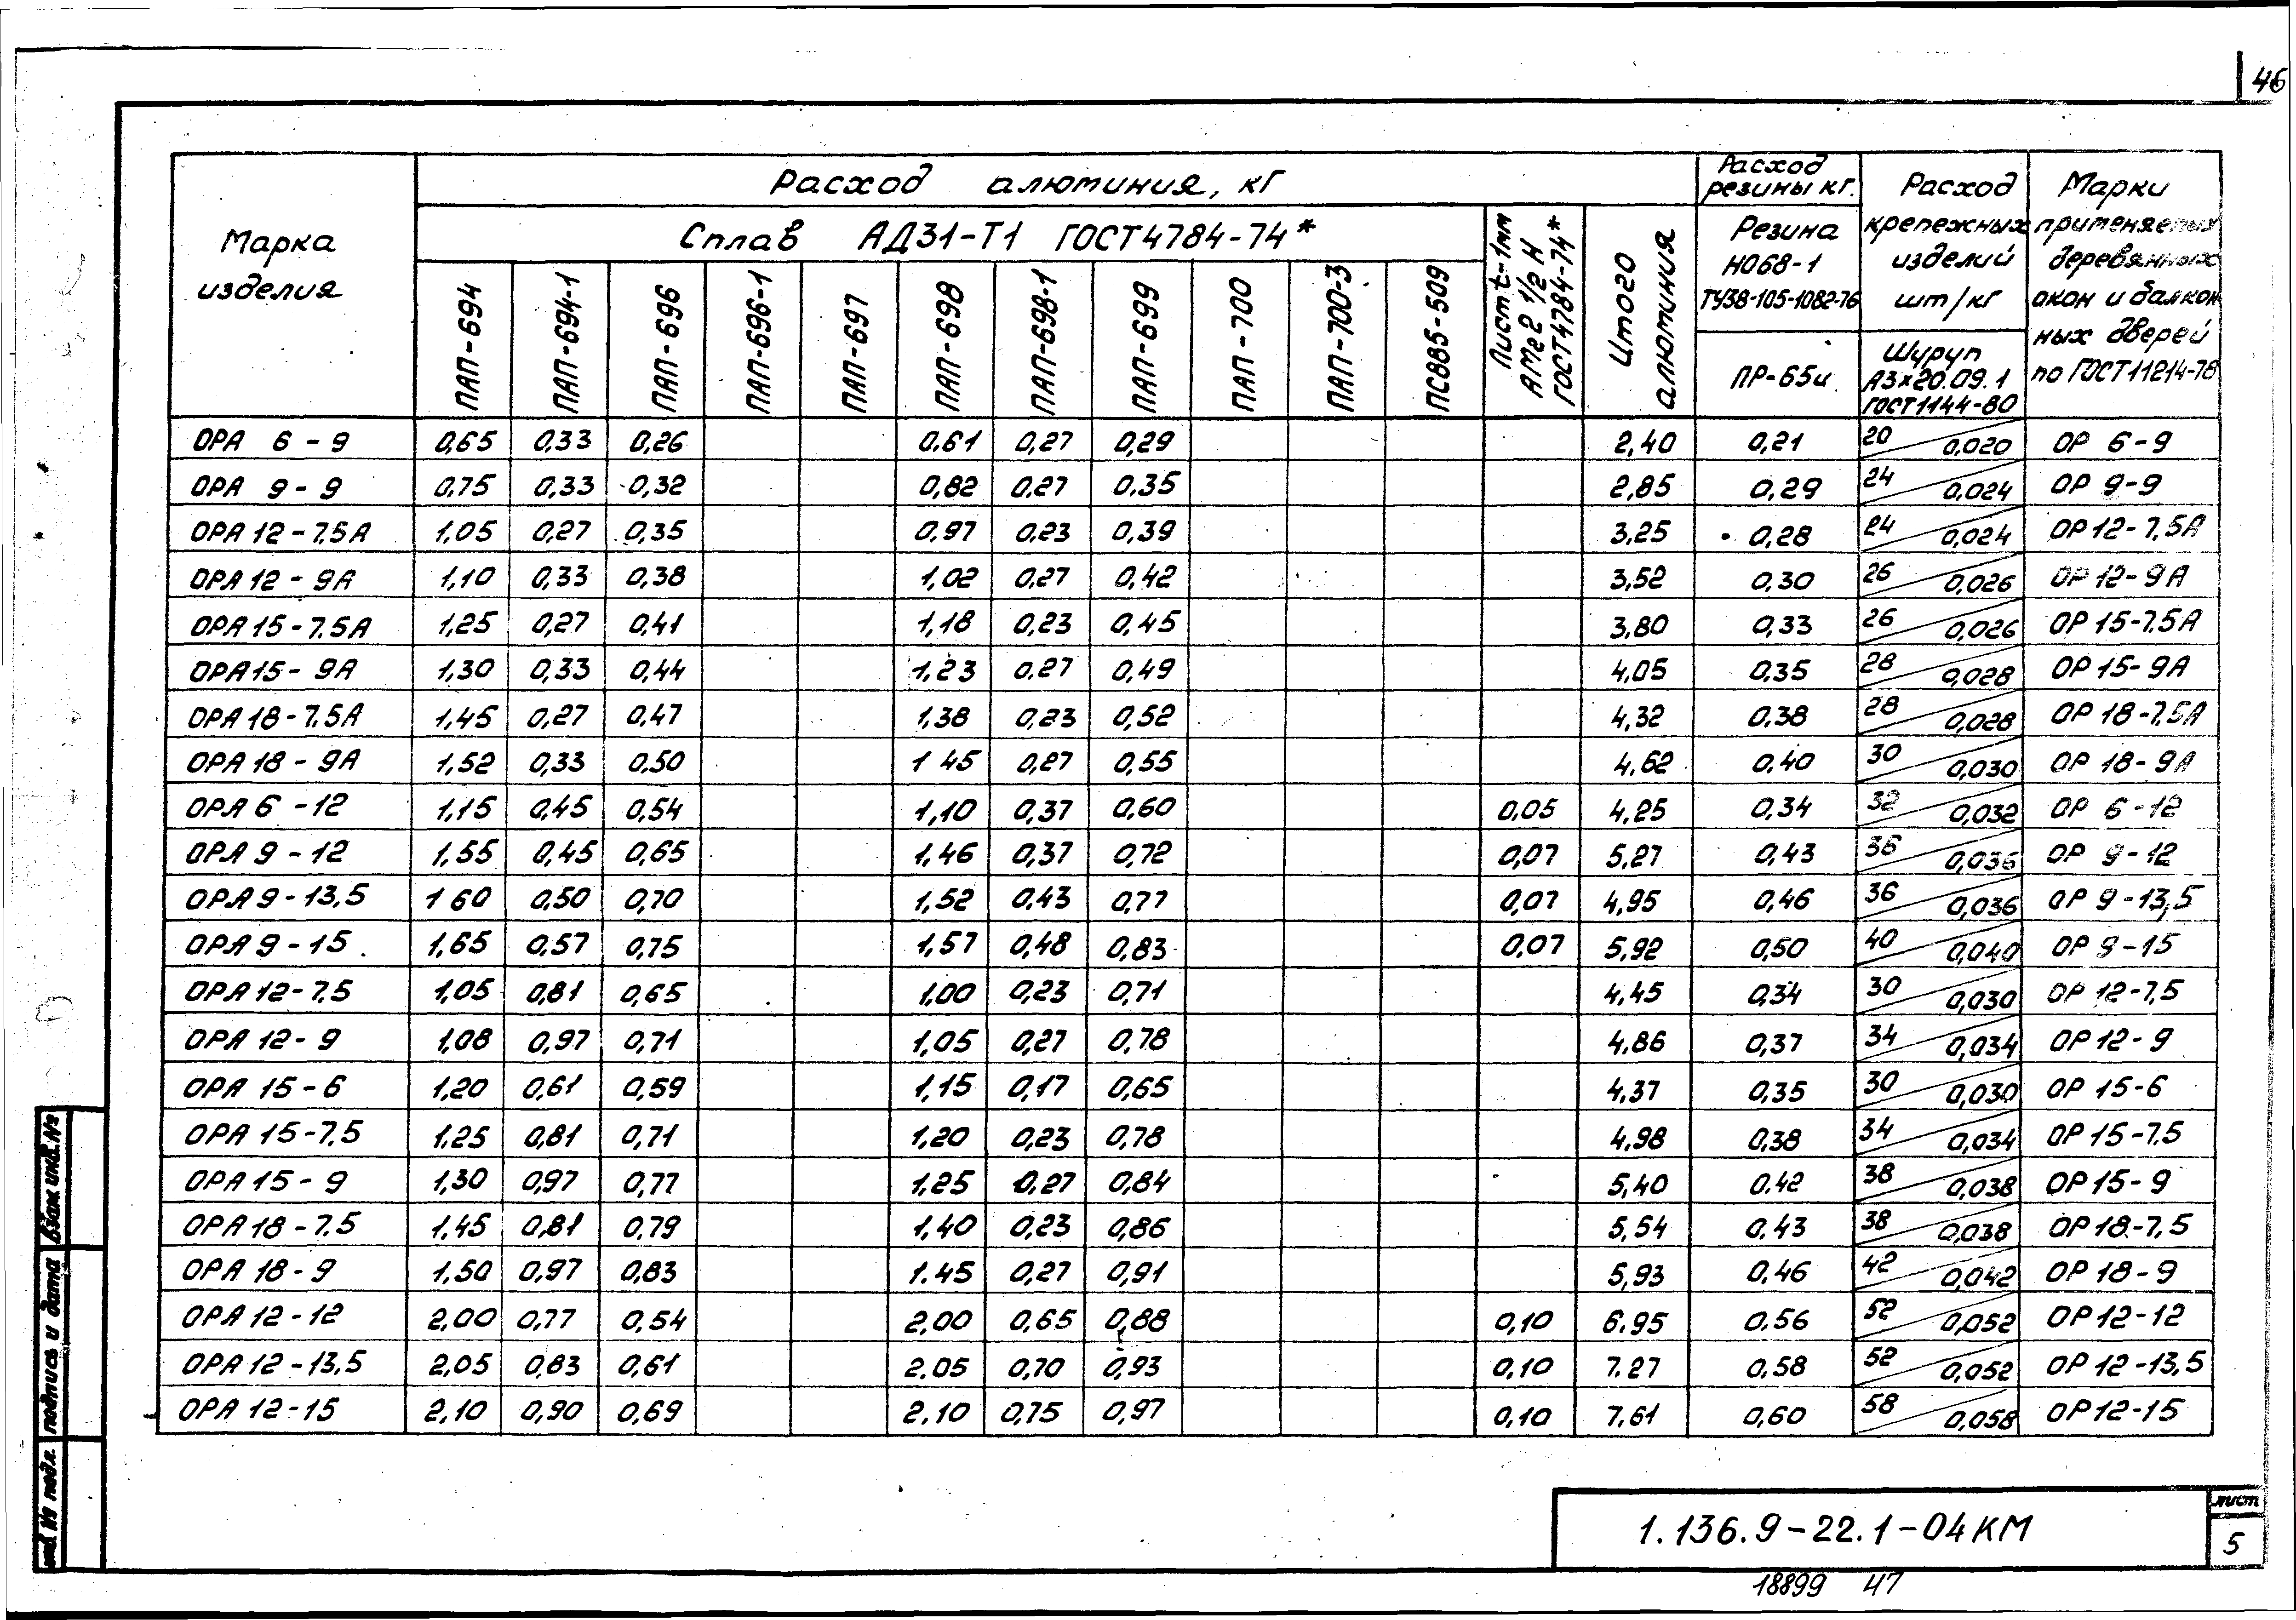 46
Марка изделия
Расход алюминия, кг
Сплав АД31-Т1 ГОСТ4784-74*
ПАП-694
ПАП-694-1
ПАП-696
ПАП-696-1
ПАП-697
ПАП-698
ПАП-698-1
ПАП-699
ПАП-700
ПАП-700-3
ПС885-509
Лист t=1мм АМг2 1/2 Н ГОСТ4784-74*
Итого алюминия
Расход резины кг.
Резина НО68-1 ТУ38-105-1082-76
ПР-65и
Расход крепежных изделий шт/кг
Шуруп А3х20.09.1 ГОСТ1144-80
Марки применяемых деревянных окон и балконных дверей по ГОСТ11214-78
ОРА 6-9 0,65 0,33 0,26 0.61 0,27 0,29 2,40 0,21 20 0,020 ОР 6-9
ОРА 9-9 0,75 0,33 0,32 0,82 0.27 0.35 2,85 0,29 24 0,024 ОР 9-9
ОРА 12-7.5А 1,05 0,27 0,35 0,97 0,23 0,39 3,25 0,28 24 0,024 ОР 12-7,5А
ОРА 12-9А 1,10 0,33 0,38 1,02 0,27 0,42 3,52 0,30 26 0,026 ОР 12-9А
ОРА 15-7.5А 1,25 0,27 0,41 1,18 0,23 0,45 3,80 0,33 26 0,026 ОР 15-7.5А
ОРА 15-9А 1,30 0,33 0,44 1,23 0.27 0,49 4,05 0,35 28 0,028 ОР 15-9А
ОРА 18-7.5А 1,45 0,27 0,47 1,38 0,23 0,52 4,32 0,38 28 0,028 ОР 18-7,5А
ОРА 18-9А 1,52 0,33 0,50 1 45 0,27 0,55 4.62 0,40 30 0,030 ОР 18-9А
ОРА 6-12 1,15 0,45 0,54 1,10 0,37 0,60 0,05 4,25 0,34 32 0,032 ОР 6-12
ОРА 9-12 1,55 0,45 0,65 1,46 0,37 0,72 0,07 5,27 0,43 36 0,036 ОР 9-12
ОРА 9-13,5 1 60 0,50 0,70 1,52 0,43 0,77 0,07 4,95 0,46 36 0,036 ОР 9-13,5
ОРА 9-15 1,65 0,57 0,75 1,57 0,48 0,83 0,07 5,92 0,50 40 0,040 ОР 9-15
ОРА 12-7,5 1,05 0,81 0,65 1,00 0,23 0,71 4,45 0,34 30 0,030 ОР 12-7,5
ОРА 12-9 1,08 0,97 0,71 1,05 0,27 0,78 4,86 0,37 34 0,034 ОР 12-9
ОРА 15-6 1,20 0,61 0,59 1,15 0,17 0,65 4,37 0,35 30 0,030 ОР 15-6
ОРА 15-7.5 1.25 0,81 0,71 1,20 0,23 0,78 4,98 0,38 34 0,034 ОР 15-7.5
ОРА 15-9 1,30 0,97 0,77 1,25 0,27 0,84 5,40 0.42 38 0,038 ОР 15-9
ОРА 18-7.5 1.45 0,81 0,79 1,40 0,23 0,86 5,54 0.43 38 0,038 ОР 18-7,5
ОРА 18-9 1,50 0,97 0,83 1.45 0,27 0,91 5,93 0,46 42 0,042 ОР 18-9
ОРА 12-12 2,00 0,77 0,54 2,00 0,65 0,88 0,10 6.95 0.56 52 0,052 ОР 12-12
ОРА 12-13,5 2,05 0,83 0,61 2,05 0,70 0,93 0,10 7.27 0,58 52 0,052 ОР 12-13,5
ОРА 12-15 2,10 0,90 0,69 2,10 0,75 0,97 0,10 7,61 0,60 58 0,058 ОР 12-15
взам инв.№
подпись и дата
инв. № подл.
1.136.9-22.1-04КМ
лист
5
18899 47